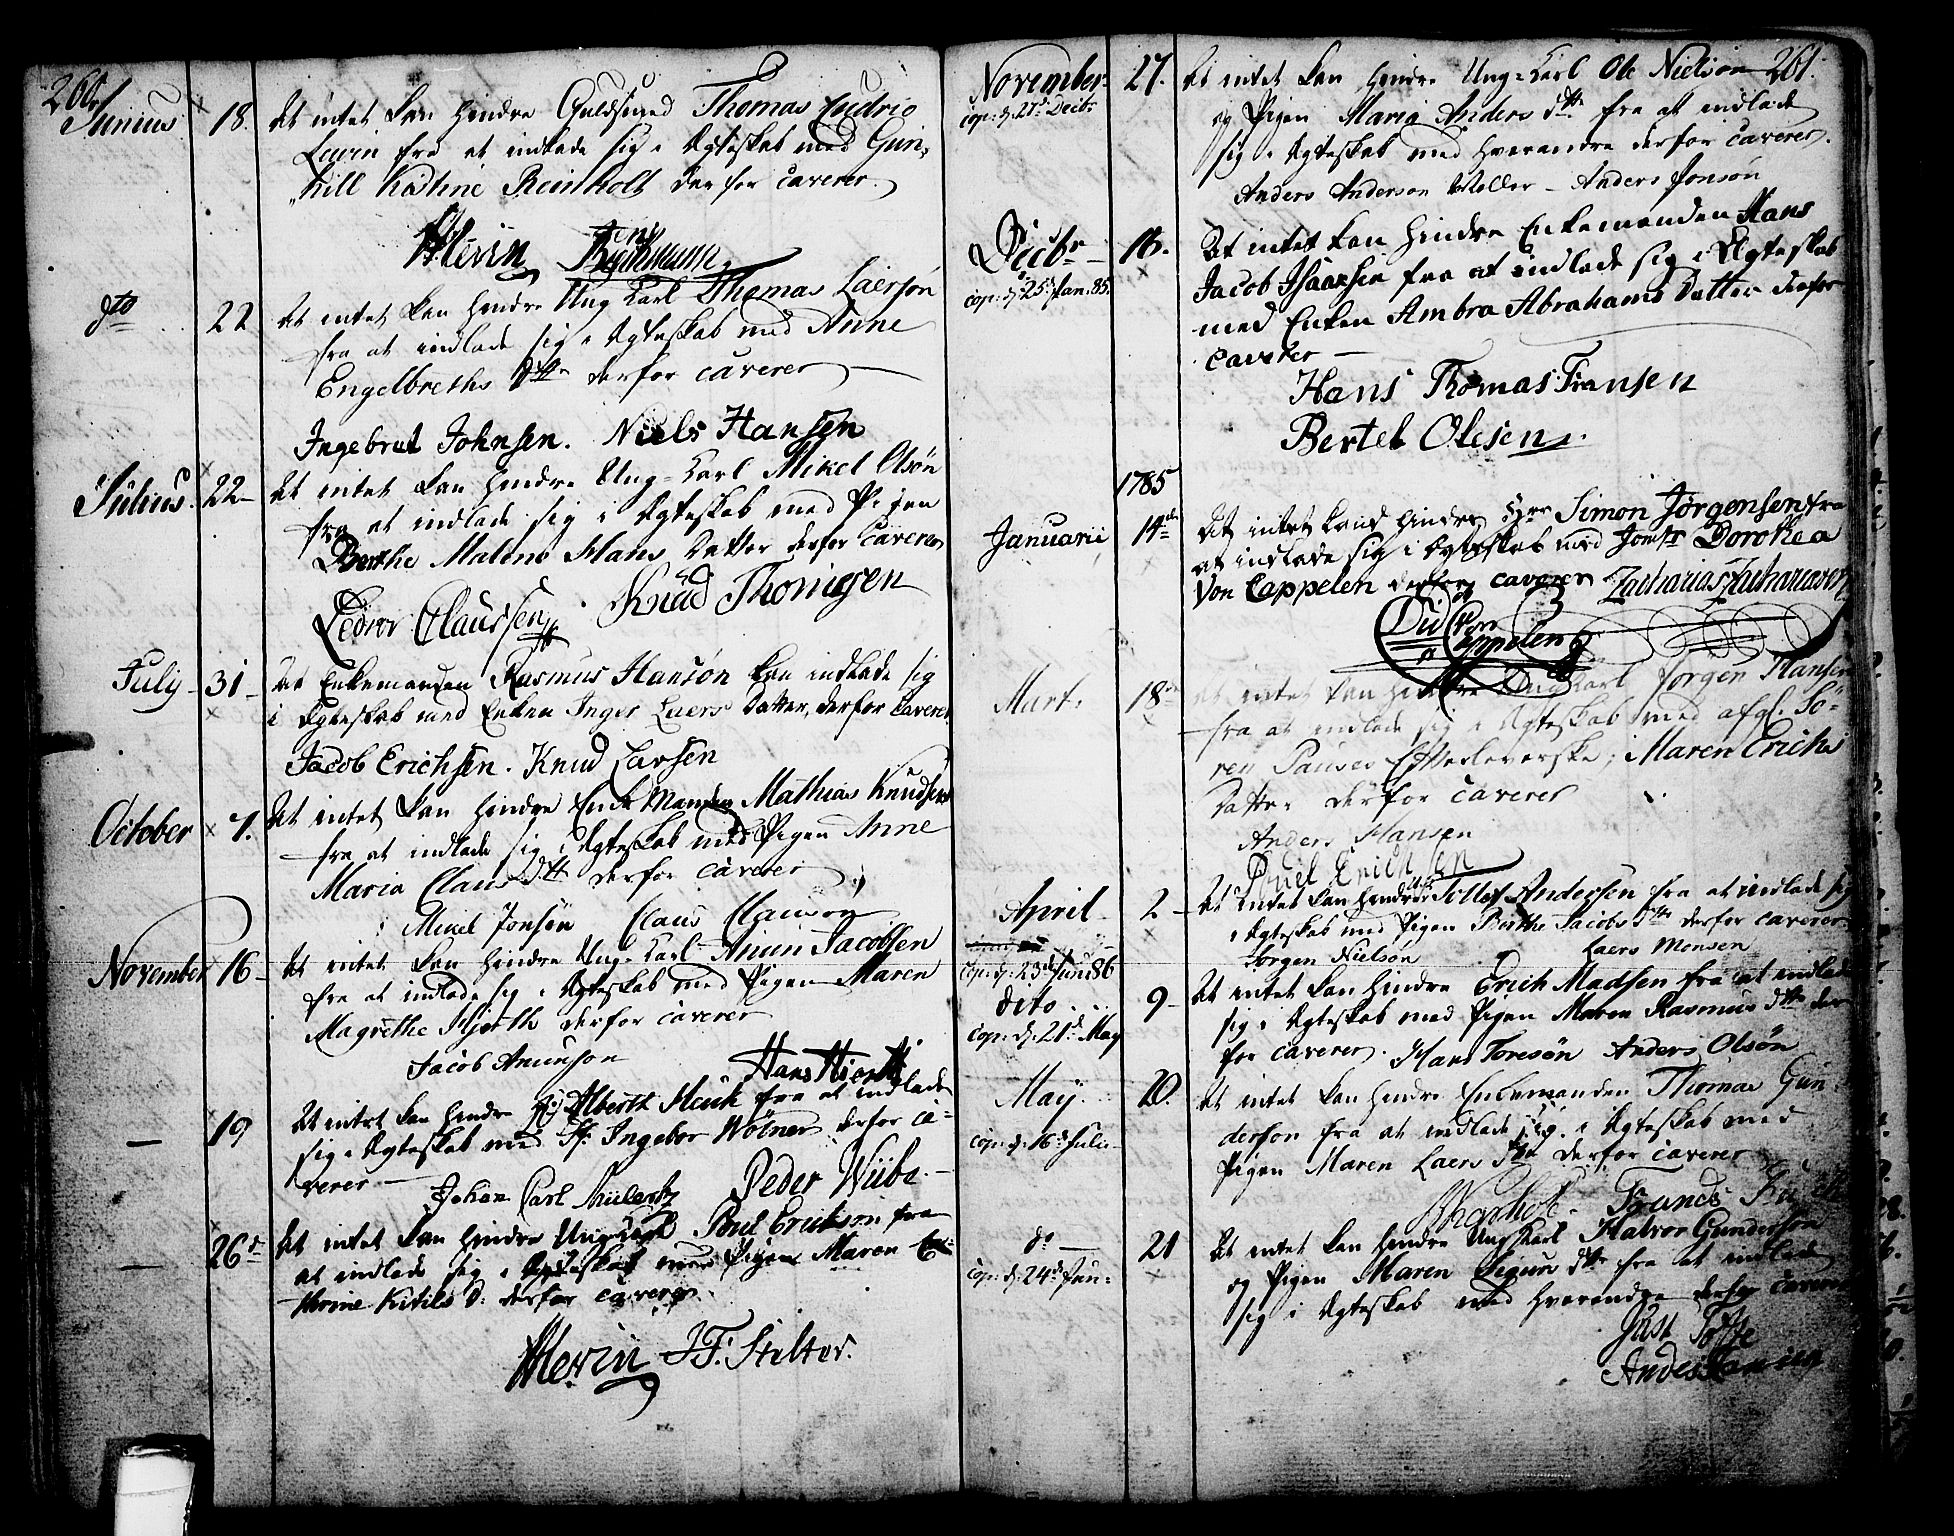 260.
Junius 18. Det intet kan hindre Guldsmed Thomas
Levin fra at indlade sig i Ægteskab med Gun-
hill Kathrie Reinholt derfor caverer.
HLevin
dto 22 Det intet kan hindre Ung Karl Thomas Laersøn
fra at indlade sig i Ægteskab med Anne
Engelbreths dttr derfor caverer
Ingebret Johnsen. Niels Hansen
Julius. 22 Det intet kan hindre Ung-Karl Mikel Olsøn
fra at indlade sig i Ægteskab med Pigen
Berthe Malene Hans Datter derfor Caverer
Peder Claussen Knud Thomesen
July 31 Det Enkemanden Rasmus Hansøn kan indlade sig
i Ægteskab med Enken Inger Laers Datter, derfor Caverer
Jacob Erichsen. Knud Larsen
October 7. Det intet kan hindre Enke Manden Mathias Knudsen
fra at indlade sig i Ægteskab med Pigen Anne
Maria Claus dttr derfor caverer
Mikel Jonsøn Claus Clausen
November 16 Det intet kan hindre Ung-Karl Amun Jacobsen
fra at indlade sig i Ægteskab med Pigen Maren
Magrethe Hjorth derfor caverer
Jacob Amunson Hans Hiorth
— 19 Det intet kan hindre Alberth Houk fra at indlade
sig i Ægteskab med Jfr Ingebor Wølner derfor ca-
verer — Johan Carl Müllertz Peder Wiibe.
— 26d Det intet kan hindre Ung Karl Poul Erickson fra
at indlade sig i Ægteskab med Pigen Maren Ca-
thrine Kittils d: derfor caverer.
HLevin JF. Stilter.
261.
November 27. Det intet kan hindre Ung-Karl Ole Nielsøn
cop: d: 27d Decbr og Pigen Maria Anders dttr fra at indlade
sig i Ægteskab med hverandre derfor Caverer.
Anders Anderson Møller - Anders Jonsøn
Decbr 16. Det intet kan hindre Enkemanden Hans
cop: d: 25d Jan: 85. Jacob Isaachsen fra at indlade sig i Ægteskab
med Enken Ambra Abrahams Datter derfor
caverer —
Hans Thomas Fransen
Bertel Olesen.
1785
Januarii 14de Det intet kand hindre Hrr Simon Jørgensen fra
at indlade sig i Ægteskab med Jomfr Dorothea
Von Cappelen derfor caverer Zacharias Zachariasen
Did von Cappelen
Mart. 18de Det intet kan hindre Ung Karl Jørgen Hansen
fra at indlade sig i Ægteskab med afgl. Sö-
ren Pauses Efterleverske, Maren Erichs
Datter derfor caverer
Anders Hansen
Poul Erichsen
April 2 Det intet kan hindre Tollef Andersen fra at indlade sig
i Ægteskab med Pigen Berthe Jacobs dttr derfor caverer
Jørgen Nielsøn Laers Monsen
cop: d: 23d Junii 86
dito 9 Det intet kan hindre Erich Madsen fra at indlade
cop: d: 21d May sig i Ægteskab med Pigen Maren Rasmus dttr der
for caverer. Hans Toresøn Anders Olsøn
May. 20. Det intet kan hindre Enkemanden Thomas Gun
cop: d: 16d Julii derson fra at indlade sig i Ægteskab med
Pigen Maren Laers dttr derfor caverer
do 21 Det intet kan hindre Ung Karl Halvor Gunderson
cop: d: 24d Jun: og Pigen Maren Sigurs dttr fra at indlade
sig i Ægteskab med hverandre derfor caverer
Just Toffte